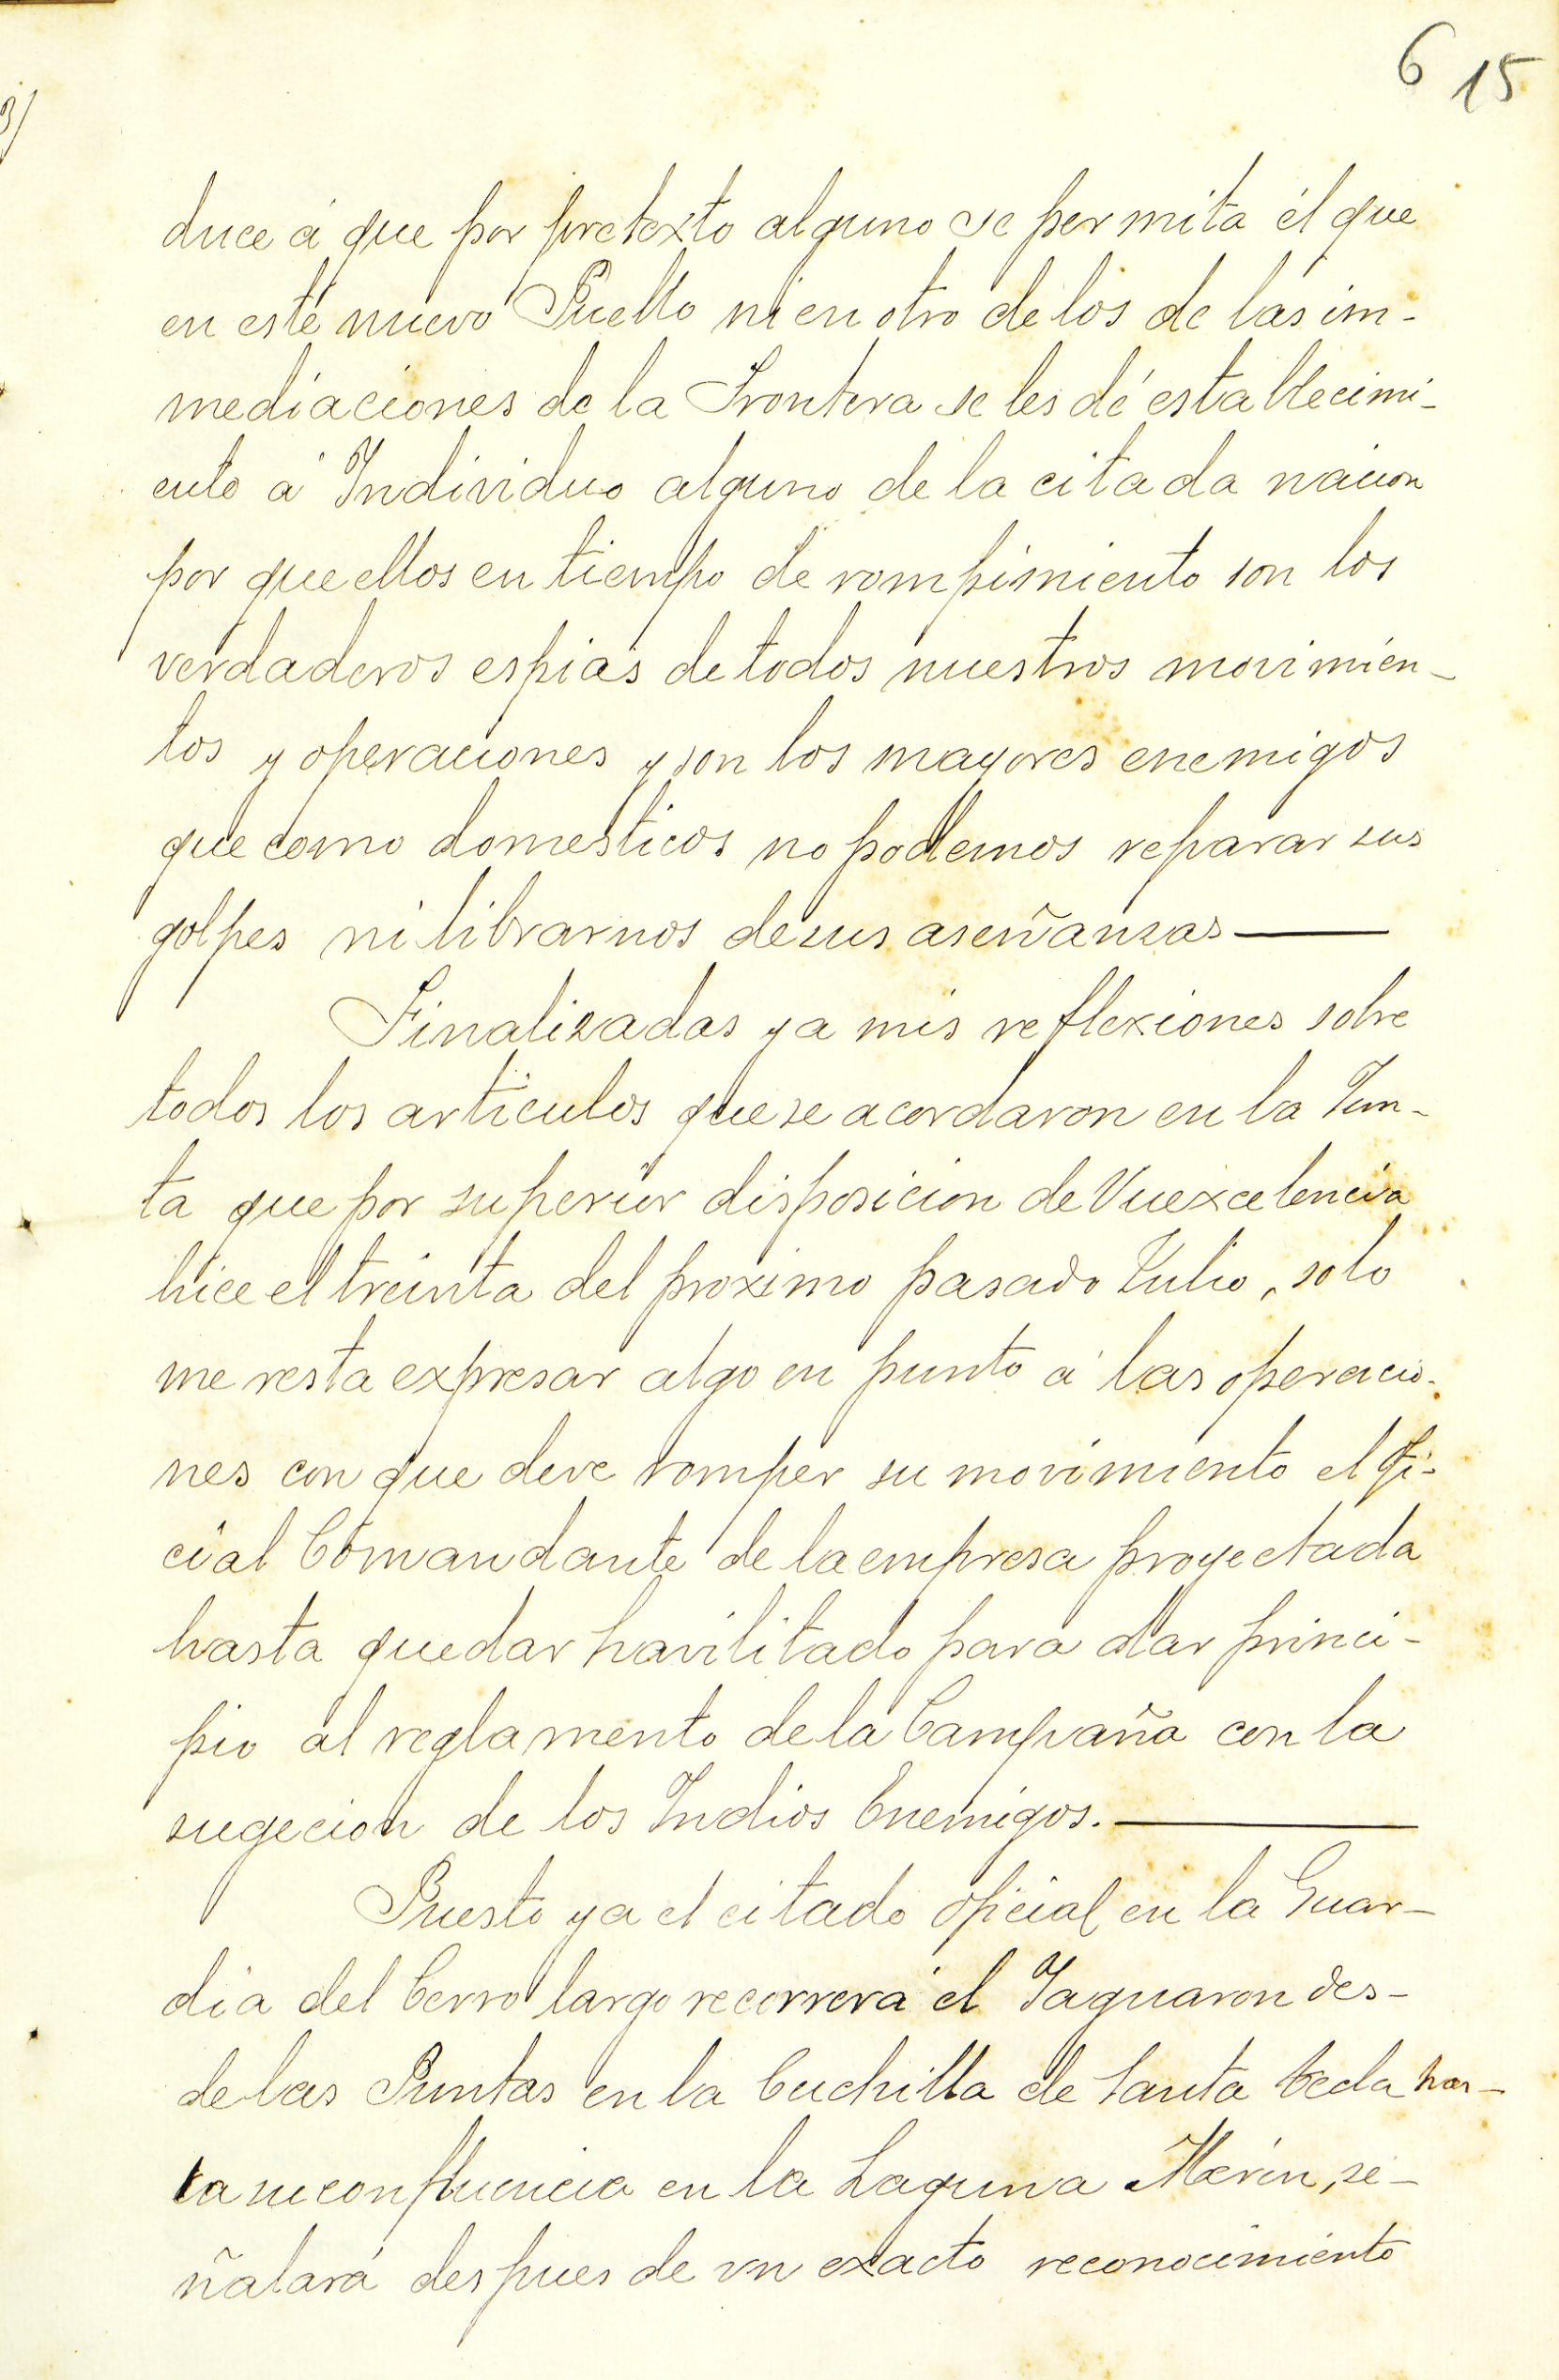 6 15
duce á que por pretexto alguno se permita él que
en esté nuevo Pueblo ni en otro de los de las im-
mediaciones de la Frontera se les dé establecimi-
ento á Individuo alguno de la citada nacion
por que ellos en tiempo de rompimiento son los
verdaderos espias de todos nuestros movimien-
tos y operaciones y son los mayores enemigos
que como domesticos no podemos reparar sus
golpes ni librarnos de sus aseñansas
Finalizadas ya mis reflexiones sobre
todos los articulos que se acordaron en la Jun-
ta que por superior disposicion de Vuexcelencia
hice el treinta del proximo pasado Julio, solo
me resta expresar algo en punto á las operacio-
nes con que deve romper su movimiento el Ofi-
cial Comandante de la empresa proyectada
hasta quedar havilitado para dar princi-
pio al reglamento de la Campaña con la
sugecion de los Indios Enemigos.
Puesto ya el citado oficial en la Guar-
dia del Cerro largo recorrerá el Jaguaron des-
de las Puntas en la Cuchilla de Santa tecla has-
ta su confluencia en la Laguna Merin, se-
ñalará despues de un exacto reconocimiento